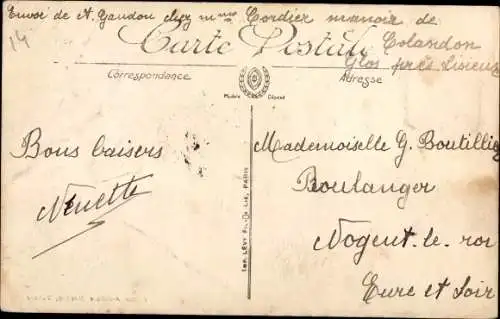 Envoi de A. Gaudou chez Mme Cordier manoir de
Colandon
Glos près Lisieux
14
Carte Postale
Correspondance
Adresse
Modèle Déposé
Bons baisers
Nénette
Mademoiselle G. Boutillier
Boulanger
Nogent-le-roi
Eure et Loir
IMP. LÉVY FILS & CIE, PARIS